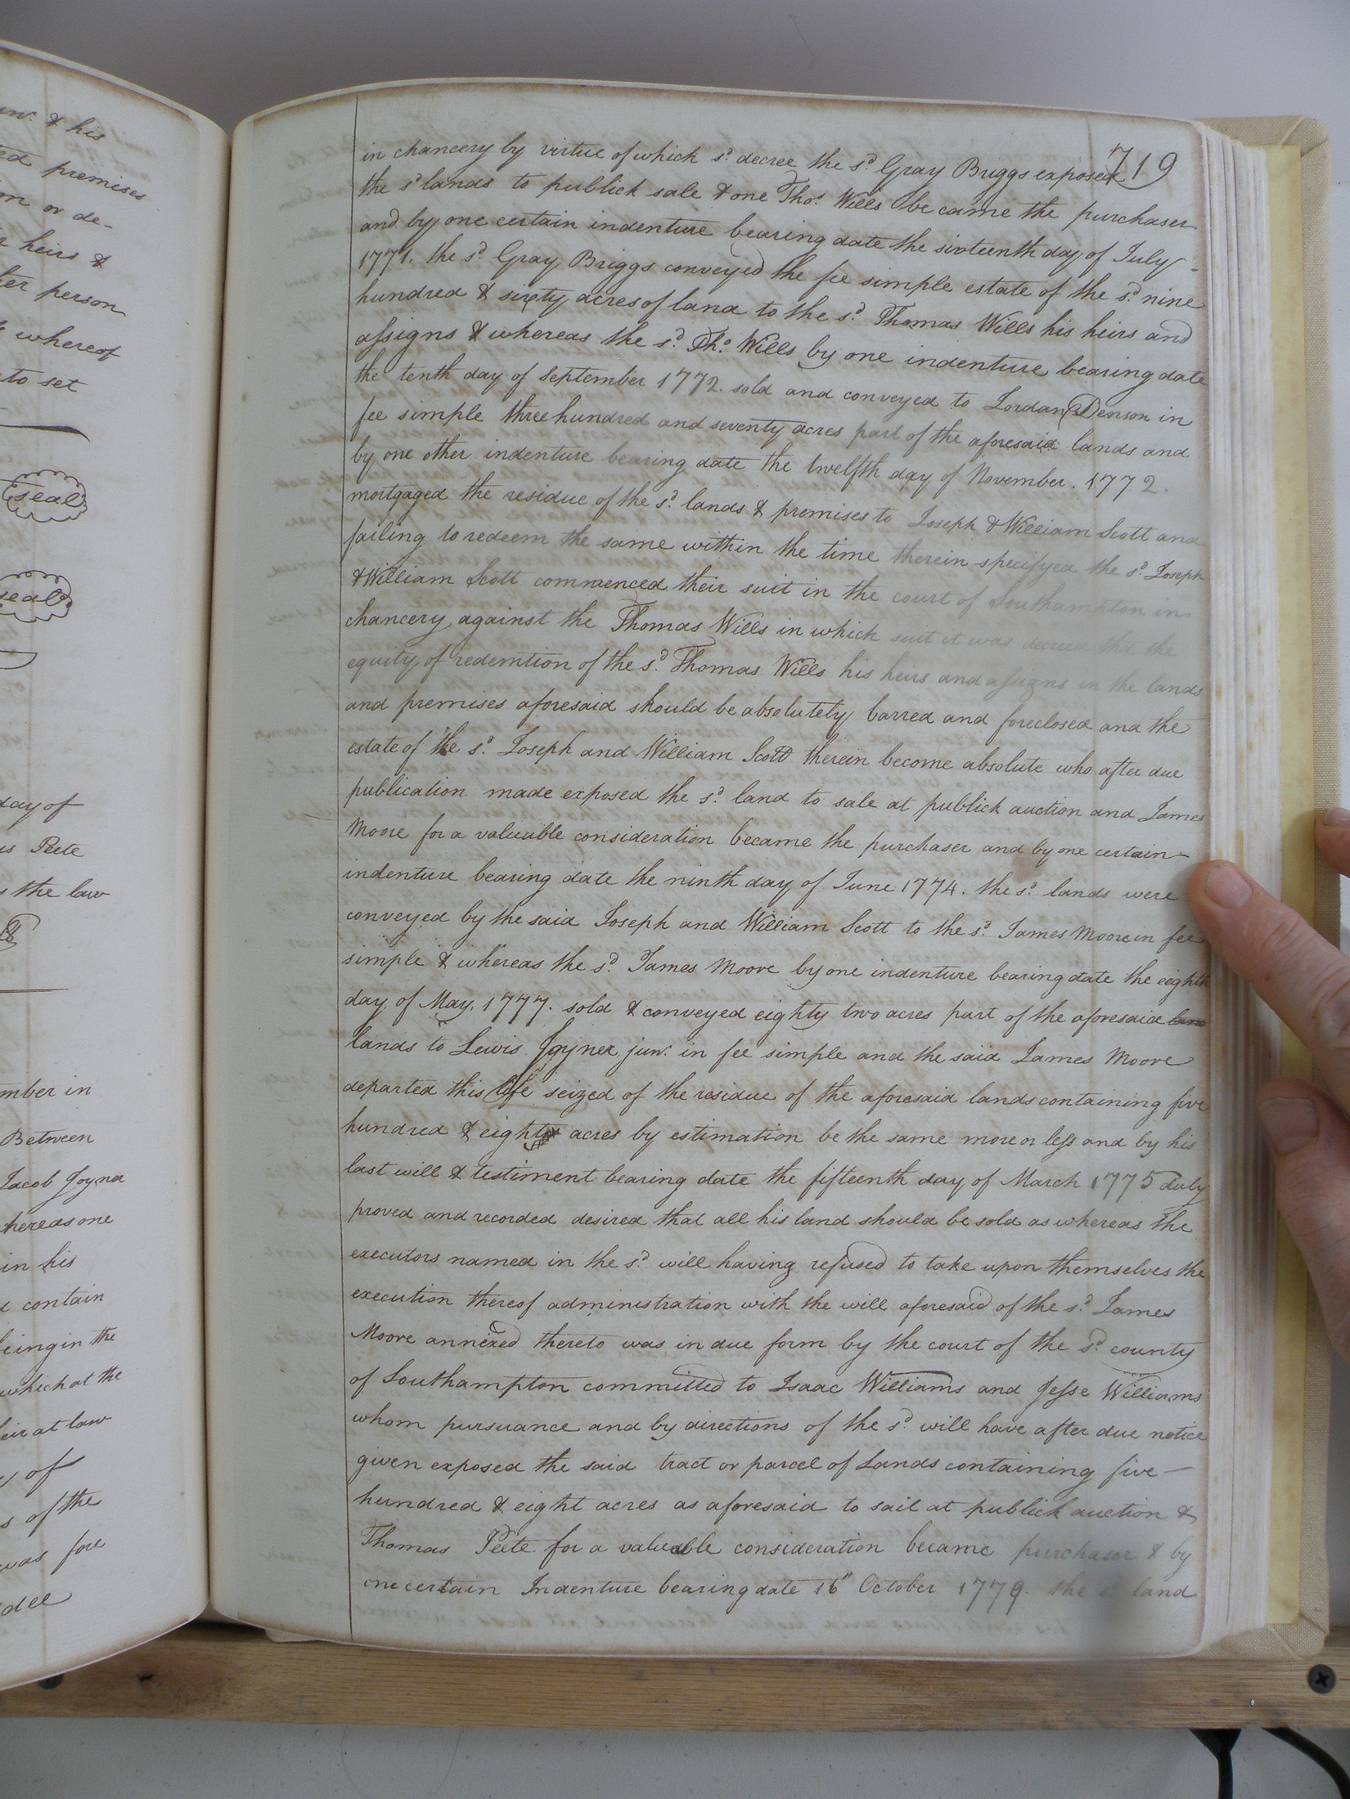 unr. & his
ed premises
on or de-
r heirs &
ter person
whereof
to set
seal
seal
day of
Peete
s the law
mber in
Between
Jacob Joyner
whereas one
in his
d contain
being in the
which at the
heir at law
y of
s of the
was fore
719
in chancery by virtue of which sd. decree the sd. Gray Briggs exposed
the sd. lands to publick sale & one Thos. Wills became the purchaser
and by one certain indenture bearing date the sixteenth day of July
1771. the sd. Gray Briggs conveyed the fee simple estate of the sd. nine
hundred & sixty acres of land to the sd. Thomas Wills his heirs and
assigns & whereas the sd. Tho. Wills by one indenture bearing date
the tenth day of September 1772. sold and conveyed to Jordan Denson in
fee simple three hundred and seventy acres part of the aforesaid lands and
by one other indenture bearing date the twelfth day of November. 1772.
mortgaged the residue of the sd. lands & premises to Joseph & William Scott and
failing to redeem the same within the time therein specifyed the sd. Joseph
& William Scott commenced their suit in the court of Southampton in
chancery against the Thomas Wills in which suit it was decreed that the
equity of redemtion of the sd. Thomas Wills his heirs and assigns in the lands
and premises aforesaid should be absolutely barred and foreclosed and the
estate of the sd. Joseph and William Scott therein become absolute who after due
publication made exposed the sd. land to sale at publick auction and James
Moore for a valuable consideration became the purchaser and by one certain
indenture bearing date the ninth day of June 1774. the sd. lands were
conveyed by the said Joseph and William Scott to the sd. James Moore in fee
simple & whereas the sd. James Moore by one indenture bearing date the eighth
day of May. 1777. sold & conveyed eighty two acres part of the aforesaid
lands to Lewis Joyner junr. in fee simple and the said James Moore
departed this life seized of the residue of the aforesaid lands containing five
hundred & eight acres by estimation be the same more or less and by his
last will & testiment bearing date the fifteenth day of March 1775 duly
proved and recorded desired that all his land should be sold as whereas the
executors named in the sd. will having refused to take upon themselves the
execution thereof administration with the will aforesaid of the sd. James
Moore annexed thereto was in due form by the court of the sd. county
of Southampton committed to Isaac Williams and Jesse Williams
whom pursuance and by directions of the sd. will have after due notice
given exposed the said tract or parcel of Lands containing five
hundred & eight acres as aforesaid to sail at publick auction &
Thomas Peete for a valuable consideration became purchaser & by
one certain Indenture bearing date 16th October 1779. the sd. land